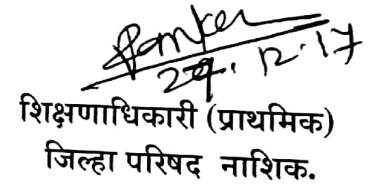 29.12.17
शिक्षणाधिकारी (प्राथमिक)
जिल्हा परिषद नाशिक.